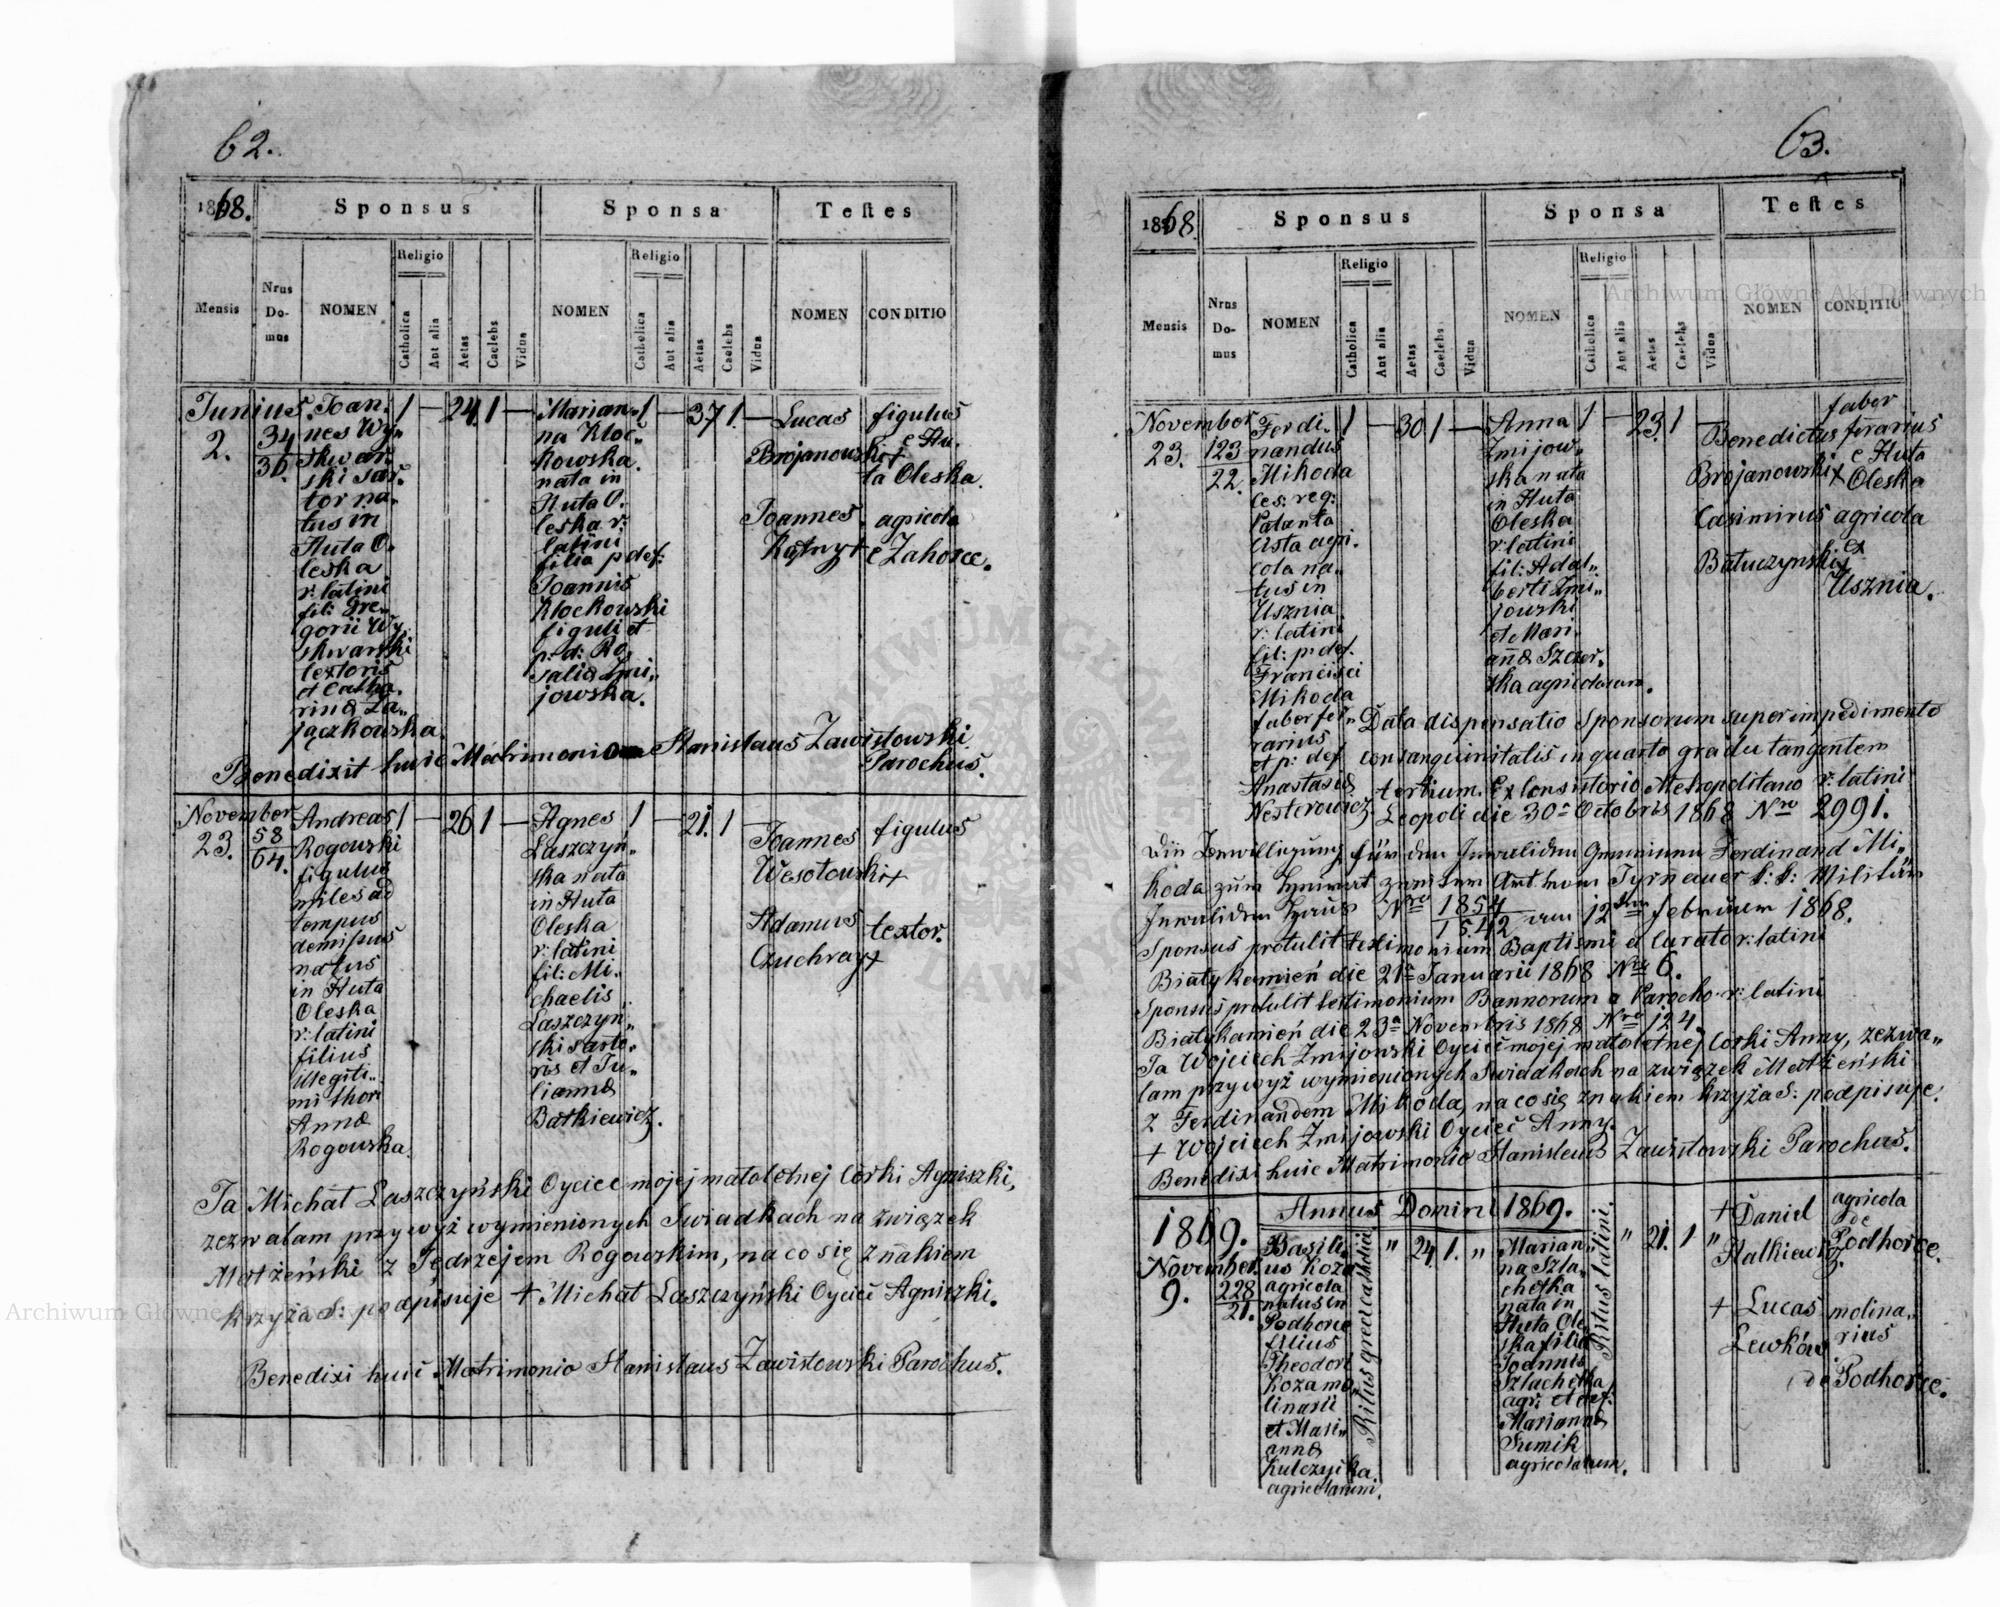 62.
1868.
Sponsus
Sponsa
Testes
Mensis
Nrus Do-mus
NOMEN
Religio
Catholica
Aut alia
Aetas
Caelebs
Vidua
NOMEN
Religio
Catholica
Aut alia
Aetas
Caelebs
Vidua
NOMEN
CONDITIO
Junius
2.
34
36.
Joan,,
nes Wy,,
skwar,,
ski sar,,
tor na,,
tus in
Huta O,,
leska
r: latini
fil: Gre,,
gorii Wy,,
skwarski
textoris
et Catha,,
rinæ Za,,
jączkowska.
1 — 24 1 —
Marian,,
na Kłoć,,
kowska.
nata in
Huta O.
leska r:
latini
filia p def:
Joannis
Kłockowski
figuli et
p: d: Ro,,
salia Żmi,,
jowska.
1 — 37 1 —
Lucas
Brojanowski+
figulus
e Hu,,
ta Oleska.
Joannes
Kątny+
agricola
e Zahorce.
Benedixit huic Matrimonio Stanislaus Zawistowski
Parochus.
November
23.
58
64.
Andreas
Rogowski
figulus
miles ad
tempus
demissus
natus
in Huta
Oleska
r: latini
filius
illegiti,,
mi thori
Annæ
Rogowska.
1 — 26 1 —
Agnes
Łaszczyń,,
ska nata
in Huta
Oleska
r: latini
fil: Mi,,
chaelis
Łaszczyń,,
ski sarto,,
ris et Ju,,
liannæ
Batkiewicz.
1 — 21. 1 —
Joannes
Wesołowski+
figulus
Adamus
Czuchray+
textor.
Ja Michał Łaszczyński Oyciec mojej małoletnej Córki Agniszki,
zezwalam przy wyż wymienionych Swiadkach na związek
Małżeński z Jędrzejem Rogowskim, na co się znakiem
krzyża S: podpisuje + Michał Łaszczyński Oyciec Agniszki.
Benedixi huic Matrimonio Stanislaus Zawistowski Parochus.
63.
1868
Sponsus
Sponsa
Testes
Mensis
Nrus Do-mus
NOMEN
Religio
Catholica
Aut alia
Aetas
Caelebs
Vidua
NOMEN
Religio
Catholica
Aut alia
Aetas
Caelebs
Vidua
NOMEN
CONDITIO
November
23.
123
22.
Ferdi,,
nandus
Mikoda
Ces: reg:
Patenta
lista agri,,
cola na,,
tus in
Usznia
r: latini
fil: p: def.
Francisci
Mikoda
faber fer,,
rarius
et p: def
Anastasiæ
Nesterowicz
1 — 30 1 —
Anna
Żmijow,,
ska nata
in Huta
Oleska
r: latini
fil: Adal,,
berti Żmi,,
jowski
et Mari,,
annæ Szczer,,
ska agricolarum.
1 — 23. 1 —
Benedictus
Brojanowski+
faber
ferrarius
e Huta
Oleska
Casimirus
Bałuczynski+
agricola
ex
Usznia.
Data dispensatio Sponsorum super impedimento
consanguinitatis in quarto gradu tangentem
tertium. Ex Consistorio Metropolitano r: latini
Leopoli die 30a Octobris 1868 Nro 2991.
Die Bewilligung für den Invaliden Gemeinen Ferdinand Mi,,
koda zum Heirat Tyrnauer k: k: Militär
Invaliden Haus Nro 1854
1542 am 12ten Februar 1868.
Sponsus protulit testimonium Baptismi a Curato r: latini
Biały Kamień die 21a Januarii 1868 Nro 6.
Sponsus protulit testimonium Bannorum a Parocho r: latini
Białykamień die 23a Novembris 1868 Nro 124
Ja Wojciech Żmijowski Oyciec mojej małoletnej Córki Anny, zezwa,,
lam przy wyż wymienionych Swiadkach na związek Małżeński
z Ferdinandem Mikoda, na co się znakiem krzyża S: podpisuje.
+ Wojciech Żmijowski Oyciec Anny.
Benedixi huic Matrimonio Stanislaus Zawistowski Parochus.
1869.
Annus Domini 1869.
November
9.
228
21.
Basili,,
us Koza
agricola
natus in
Podhorce
filius
Theodori
Koza mo,,
linarii
et Mari,,
annæ
Kulczycka
agricolarum.
Ritus græci catholici
" 24 1. "
Marian,,
na Szla,,
chetka
nata in
Huta Ole,,
ska filia
Joannis
Szlachetka
agr: et def:
Mariannæ
Sumik
agricolarum.
Ritus latini.
" 21. 1 "
+ Daniel
Halkiewicz
agricola
de
Podhorce.
+ Lucas
Lewków
molina,,
rius
de Podhorce.
Archiwum Główne Akt Dawnych